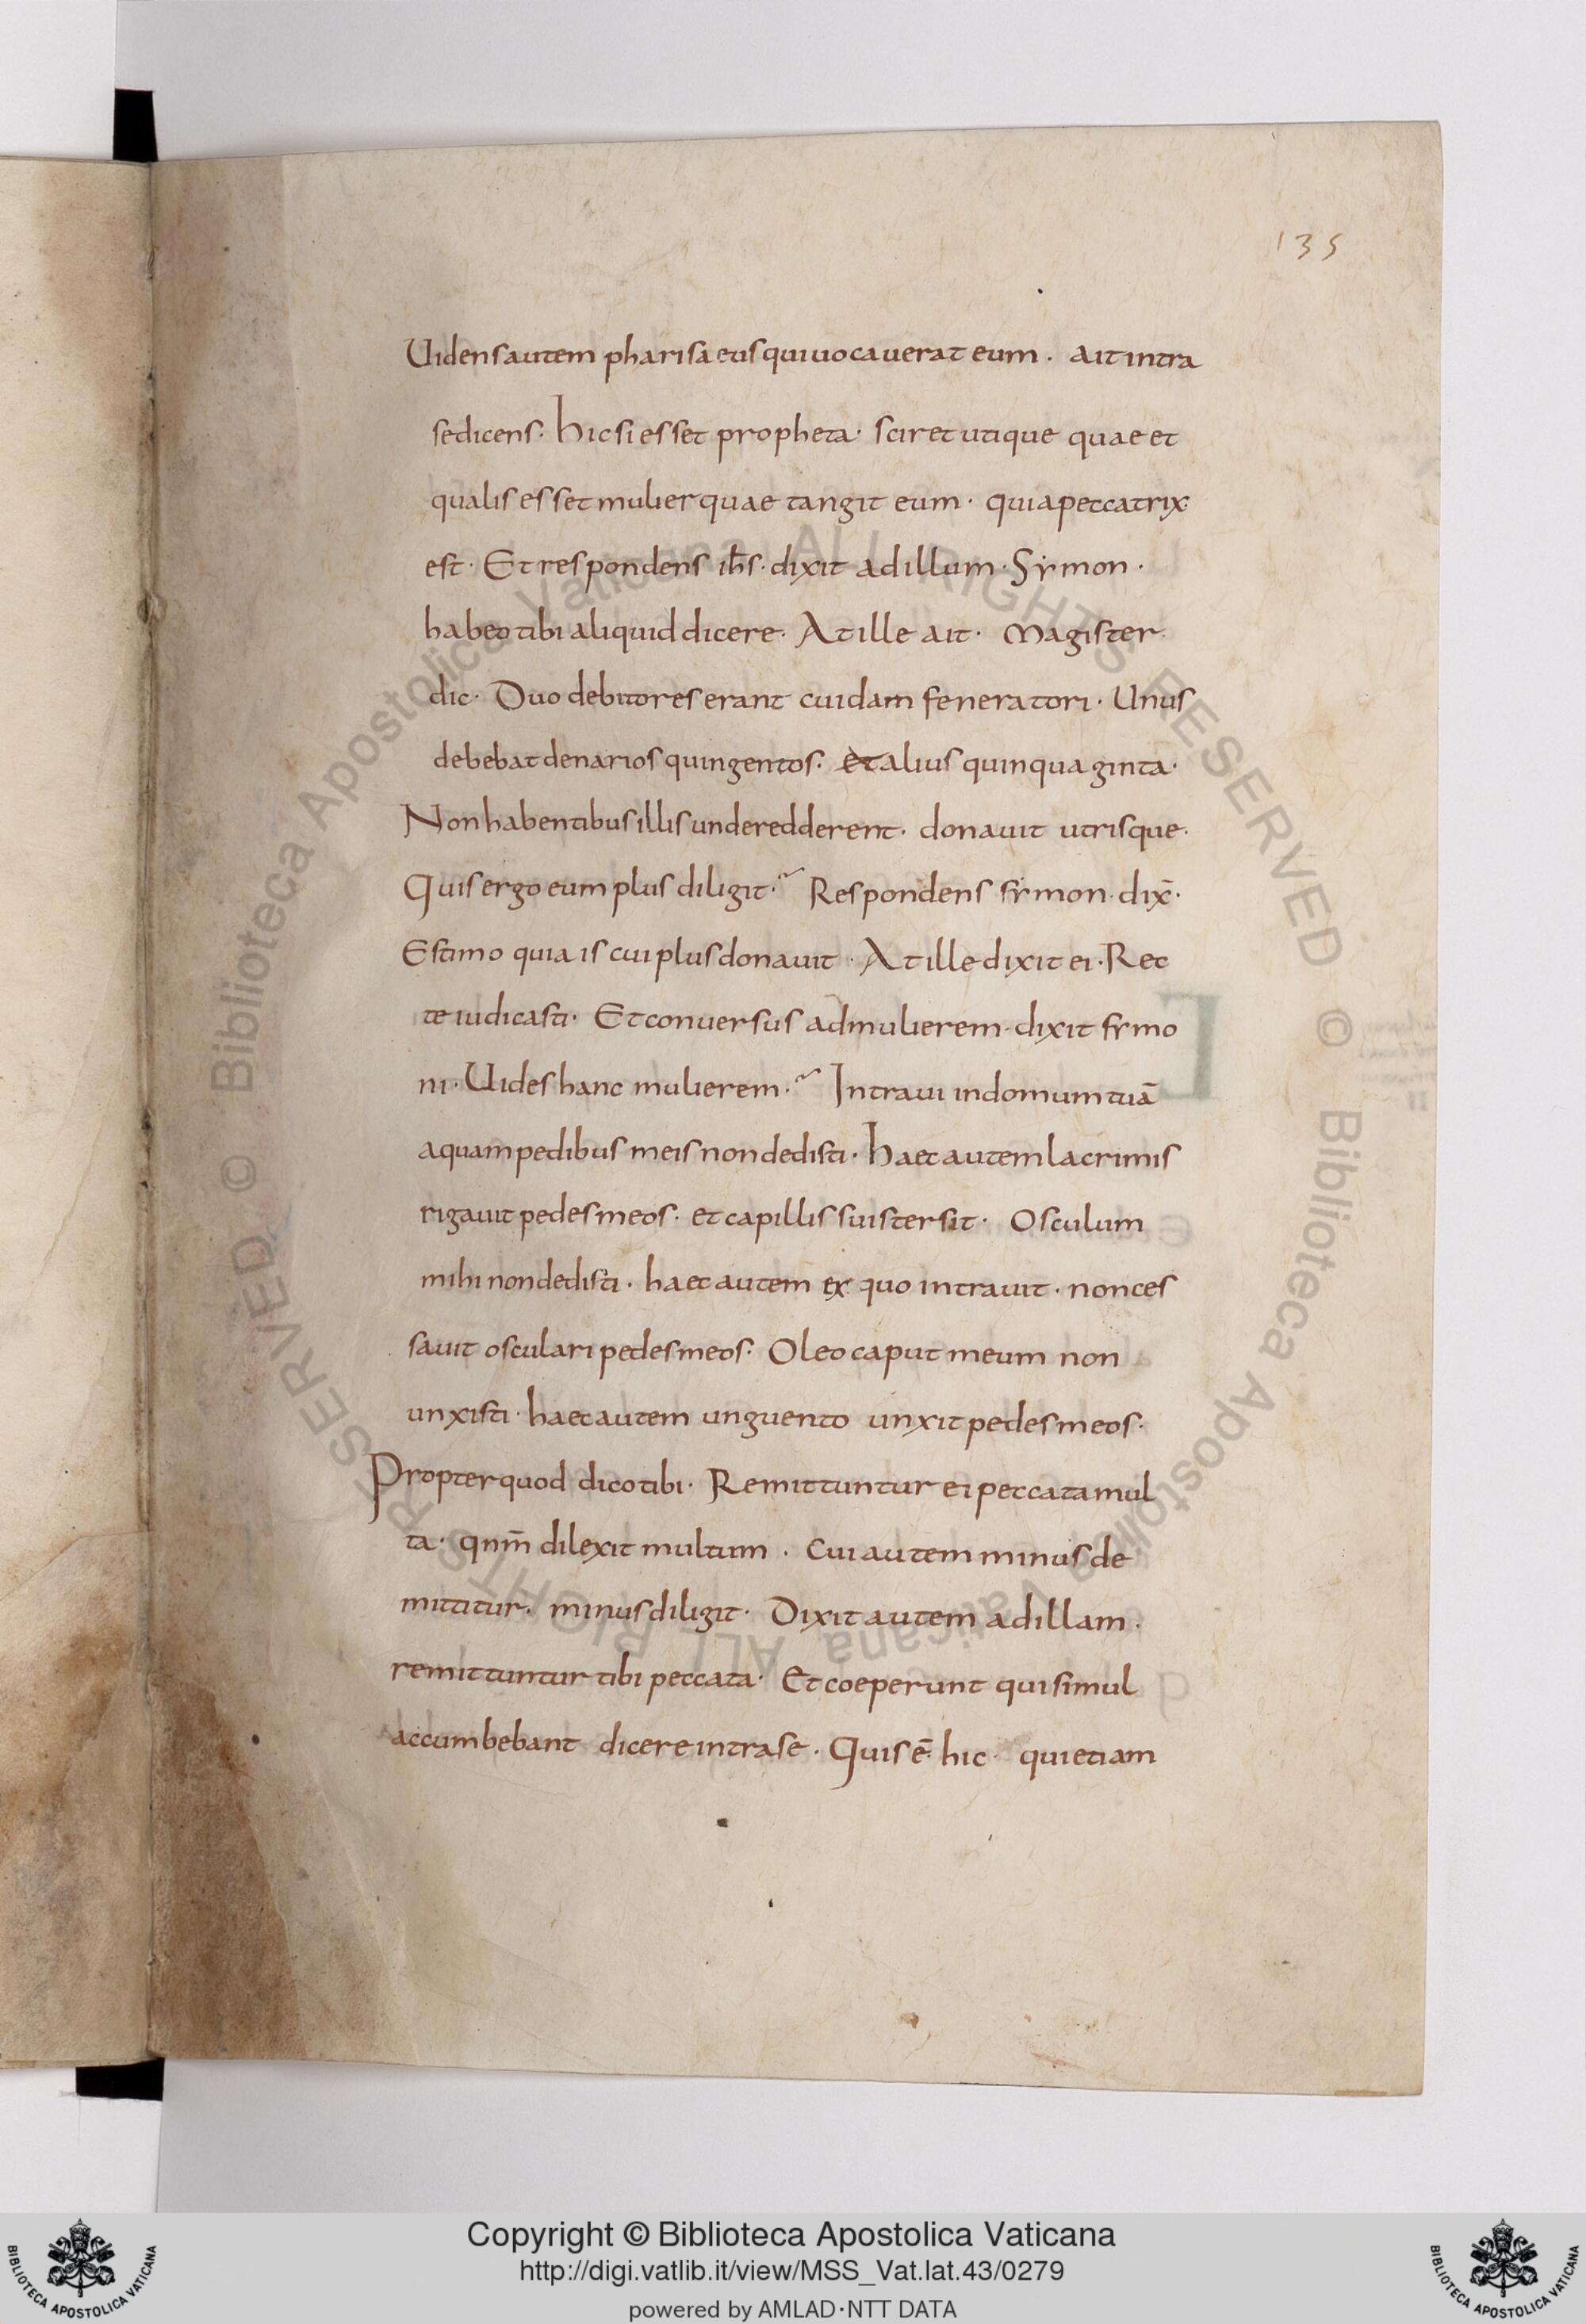 135
Uidens autem pharisaeus qui uocauerat eum · ait intra
se dicens · hic si esset propheta · sciret utique quae et
qualis esset mulier quae tangit eum · quia peccatrix
est · Et respondens ih̅s · dixit ad illum · Sẏmon ·
habeo tibi aliquid dicere · At ille ait · Magister
dic · Duo debitores erant cuidam feneratori · Unus
debebat denarios quingentos · et alius quinquaginta ·
Non habentibus illis unde redderent · donauit utrisque ·
Quis ergo eum plus diligit ·~ Respondens sẏmon · dix̅ ·
Estimo quia is cui plus donauit · At ille dixit ei · Rec
te iudicasti · Et conuersus ad mulierem · dixit sẏmo
ni · Uides hanc mulierem ·~ Intraui in domum tuā
aquam pedibus meis non dedisti · haec autem lacrimis
rigauit pedes meos · et capillis suis tersit · Osculum
mihi non dedisti · haec autem ex quo intrauit · non ces
sauit osculari pedes meos · Oleo caput meum non
unxisti · haec autem unguento unxit pedes meos ·
Propter quod dico tibi · Remittuntur ei peccata mul
ta · qnm̅ dilexit multum · cui autem minus de
mittitur · minus diligit · Dixit autem ad illam ·
remittuntur tibi peccata · Et coeperunt qui simul
accumbebant dicere intra se · Quis ē hic · qui etiam
Copyright © Biblioteca Apostolica Vaticana
http://digi.vatlib.it/view/MSS_Vat.lat.43/0279
powered by AMLAD·NTT DATA
BIBLIOTECA APOSTOLICA VATICANA
BIBLIOTECA APOSTOLICA VATICANA
© Biblioteca Apostolica Vaticana ALL RIGHTS RESERVED © Biblioteca Apostolica Vaticana ALL RIGHTS RESERVED